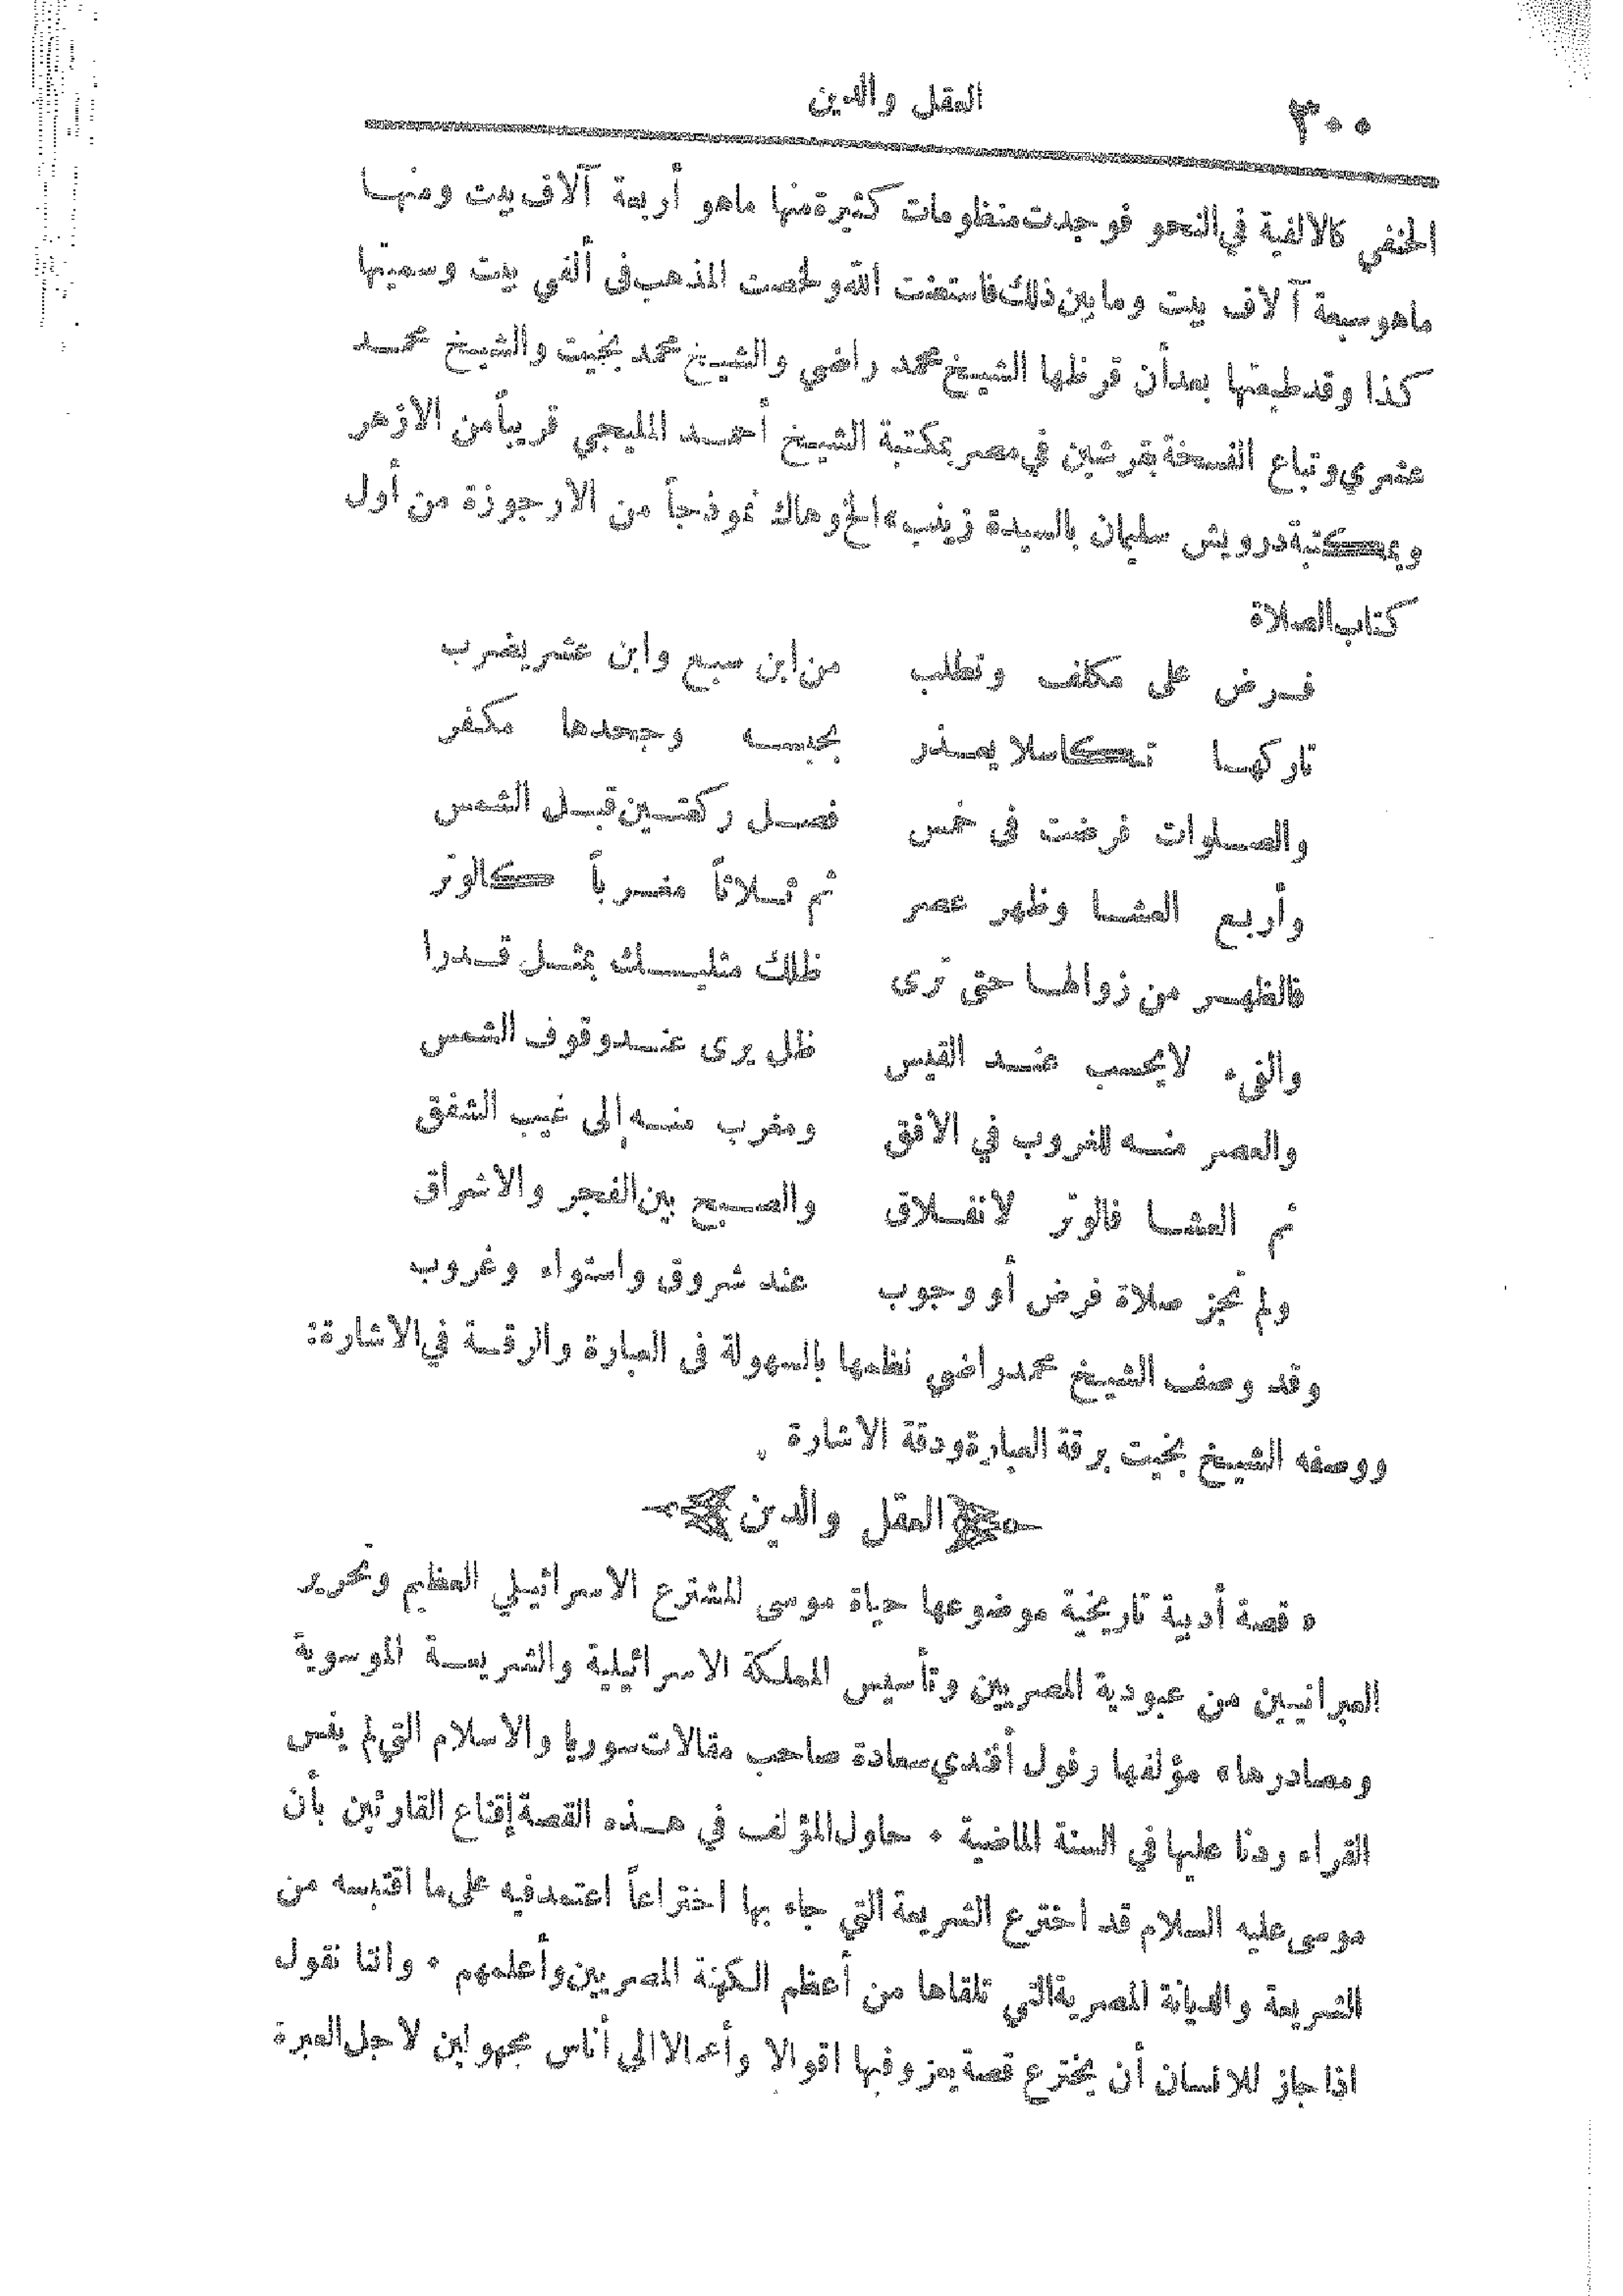 ٣٠٠
العقل والدين
الحنفي كالالفية في النحو فوجدت منظومات كثيرة منها ماهو أربعة آلاف بيت ومنها
ماهو سبعة آلاف بيت وما بين ذلك فاستعنت الله ولخصت المذهب فى ألفي بيت وسميتها
كذا وقد طبعتها بعد أن قرظها الشيخ محمد راضي والشيخ محمد بخيت والشيخ محمد
عشري وتباع النسخة بقرشين في مصر بمكتبة الشيخ أحمد المليجي قريباً من الازهر
وبمكتبة درويش سليمان بالسيدة زينب» الخ وهاك نموذجاً من الارجوزة من أول
كتاب الصلاة
فرض على مكلف وتطلب من ابن سبع وابن عشر يضرب
تاركها تكاسلا يعذر بحبسه وجحدها مكفر
والصلوات فرضت فى خمس فصل ركعتين قبل الشمس
وأربع العشا وظهر عصر ثم ثلاثاً مغرباً كالوتر
فالظهر من زوالها حتى ترى ظلك مثليك بمثل قدرا
والفىء لايحسب عند القيس ظل يرى عند وقوف الشمس
والعصر منه للغروب في الافق ومغرب منه إلى غيب الشفق
ثم العشا فالوتر لانفلاق والصبح بين الفجر والاشراق
ولم تجز صلاة فرض أو وجوب عند شروق واستواء وغروب
وقد وصف الشيخ محمد راضي نظمها بالسهولة فى العبارة والرقة في الاشارة:
ووصفه الشيخ بخيت برقة العبارة ودقة الاشارة .
العقل والدين
« قصة أدبية تاريخية موضوعها حياة موسى المشترع الاسرائيلي العظيم وتحرير
العبرانيين من عبودية المصريين وتأسيس المملكة الاسرائيلية والشريعة الموسوية
ومصادرها» مؤلفها رفول أفندي سعادة صاحب مقالات سوريا والاسلام التي لم ينس
القراء ردنا عليها في السنة الماضية . حاول المؤلف في هذه القصة إقناع القارئين بأن
موسى عليه السلام قد اخترع الشريعة التي جاء بها اختراعاً اعتمد فيه على ما اقتبسه من
الشريعة والديانة المصرية التي تلقاها من أعظم الكهنة المصريين وأعلمهم . واننا نقول
اذا جاز للانسان أن يخترع قصة يعزو فيها اقوالا وأعمالا الى أناس مجهولين لاجل العبرة